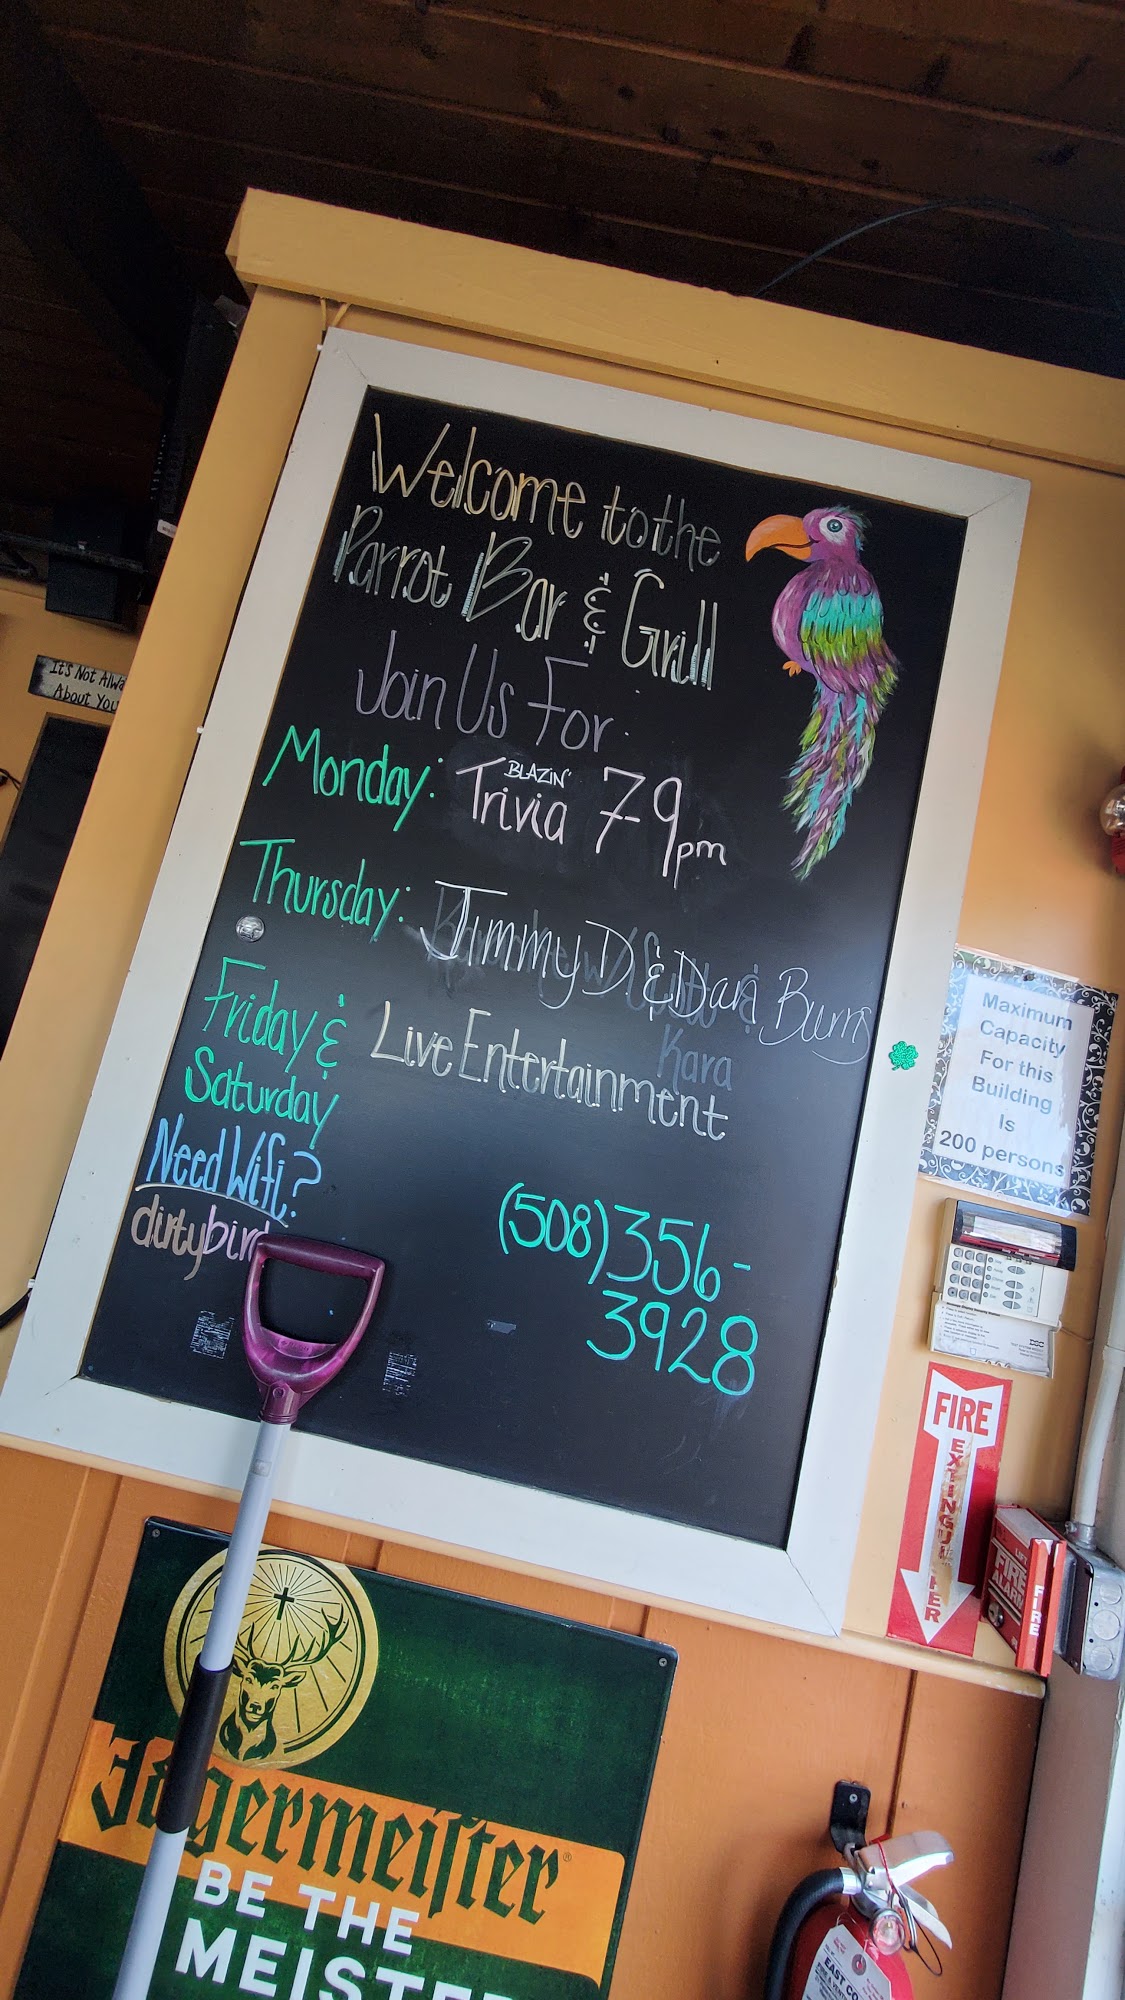 Welcome to the
Parrot Bar & Grill
Join Us For
Monday: BLAZIN' Trivia 7-9pm
Thursday: Jimmy D & Dan Burns
Kara
Friday &
Saturday
Live Entertainment
Need Wifi?
dirtybir
(508)356-
3928
It's Not Alwa
About You
Maximum
Capacity
For this
Building
Is
200 persons
FIRE
EXTINGUISHER
LIFT
FIRE
ALARM
FIRE
Jägermeister®
BE THE
MEISTE
EAST CO
FIRE